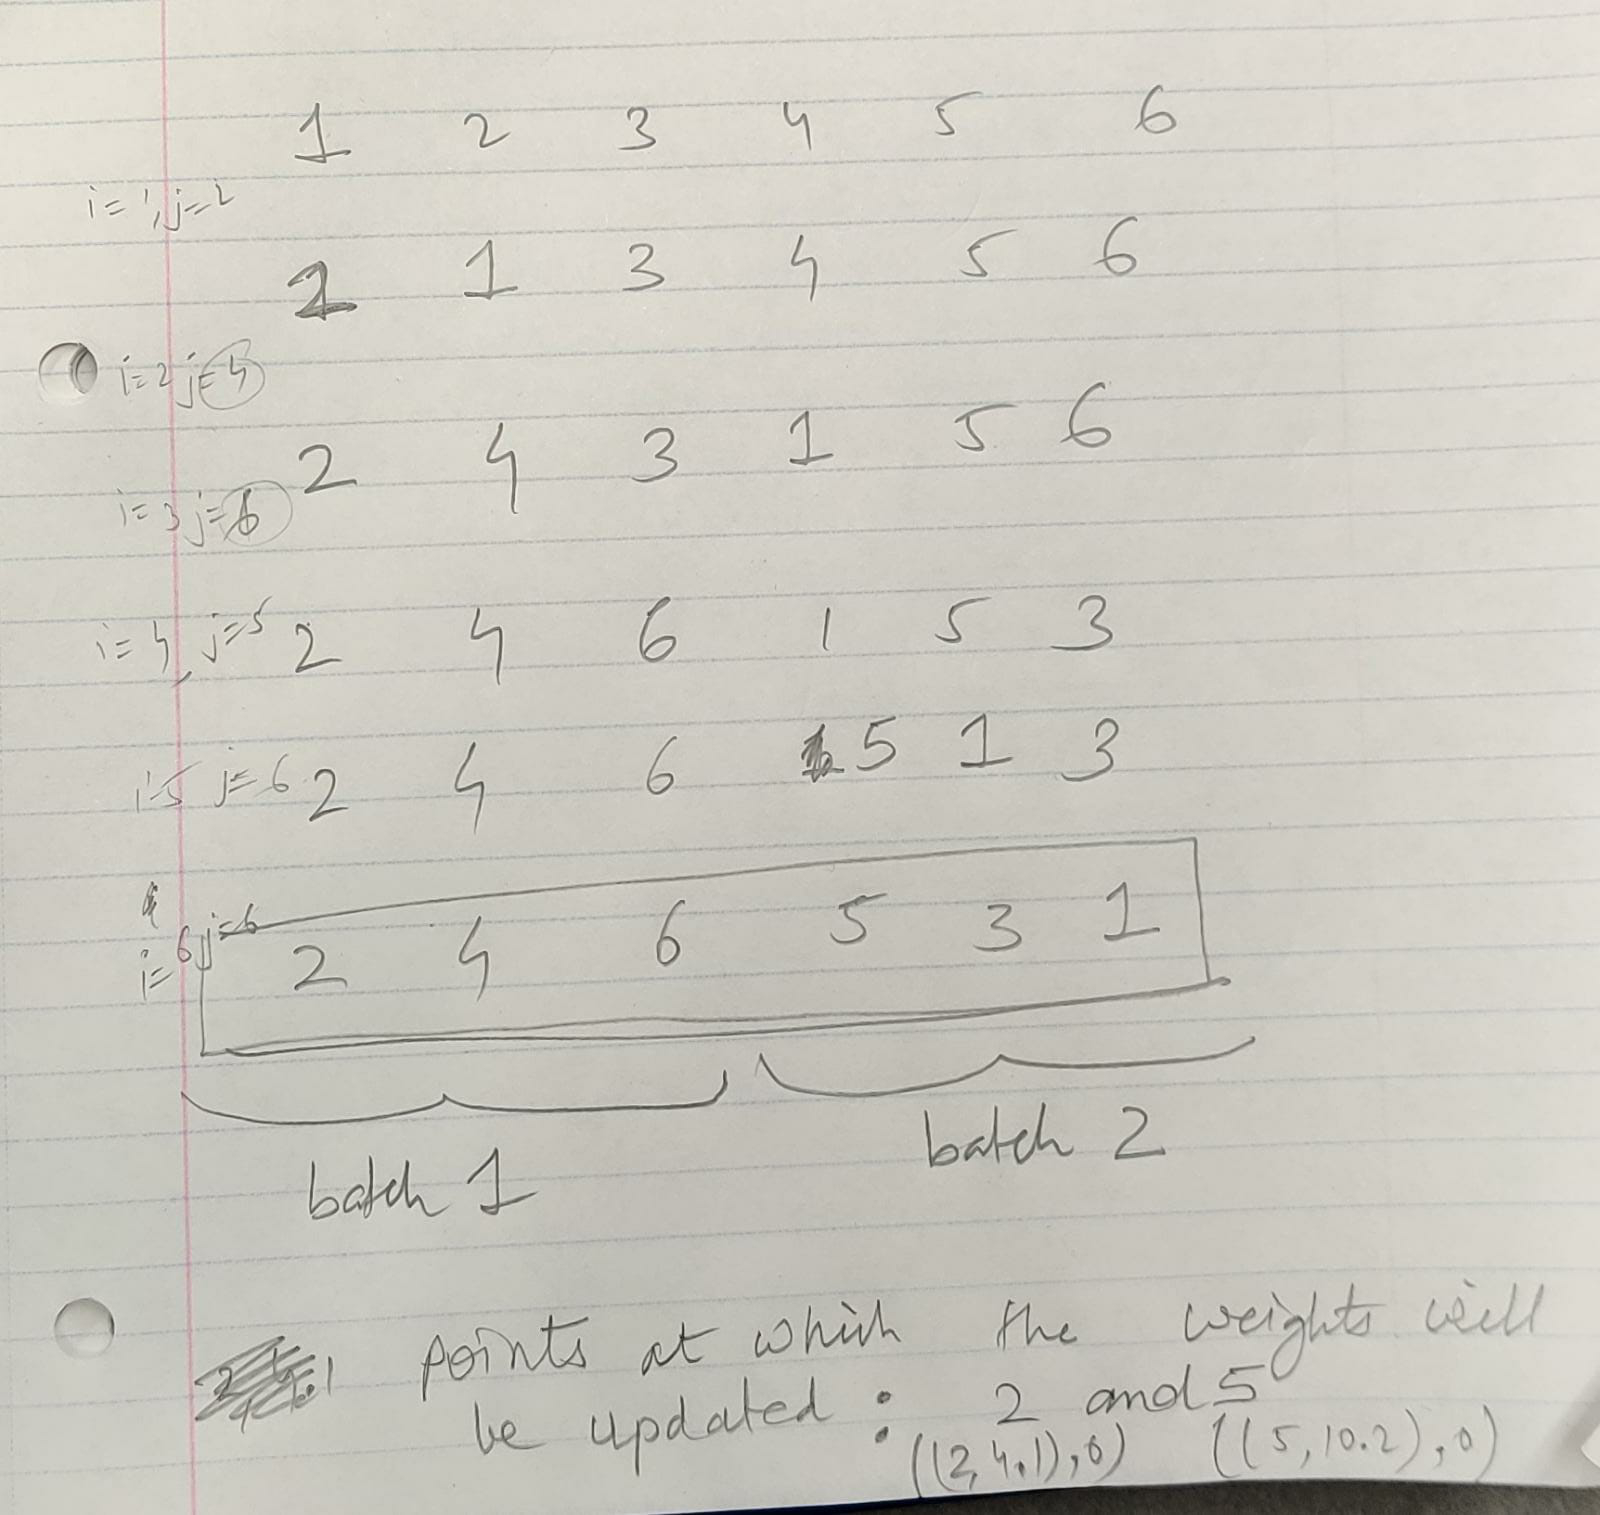 1 2 3 4 5 6
i=1, j=2
2 1 3 4 5 6
i=2 j=4
2 4 3 1 5 6
i=3 j=6
i=4, j=5 2 4 6 1 5 3
i=5 j=6 2 4 6 5 1 3
i=6 j=6 2 4 6 5 3 1
batch 1 batch 2
points at which the weights will
be updated : 2 and 5
((2,4.1),0) ((5,10.2),0)